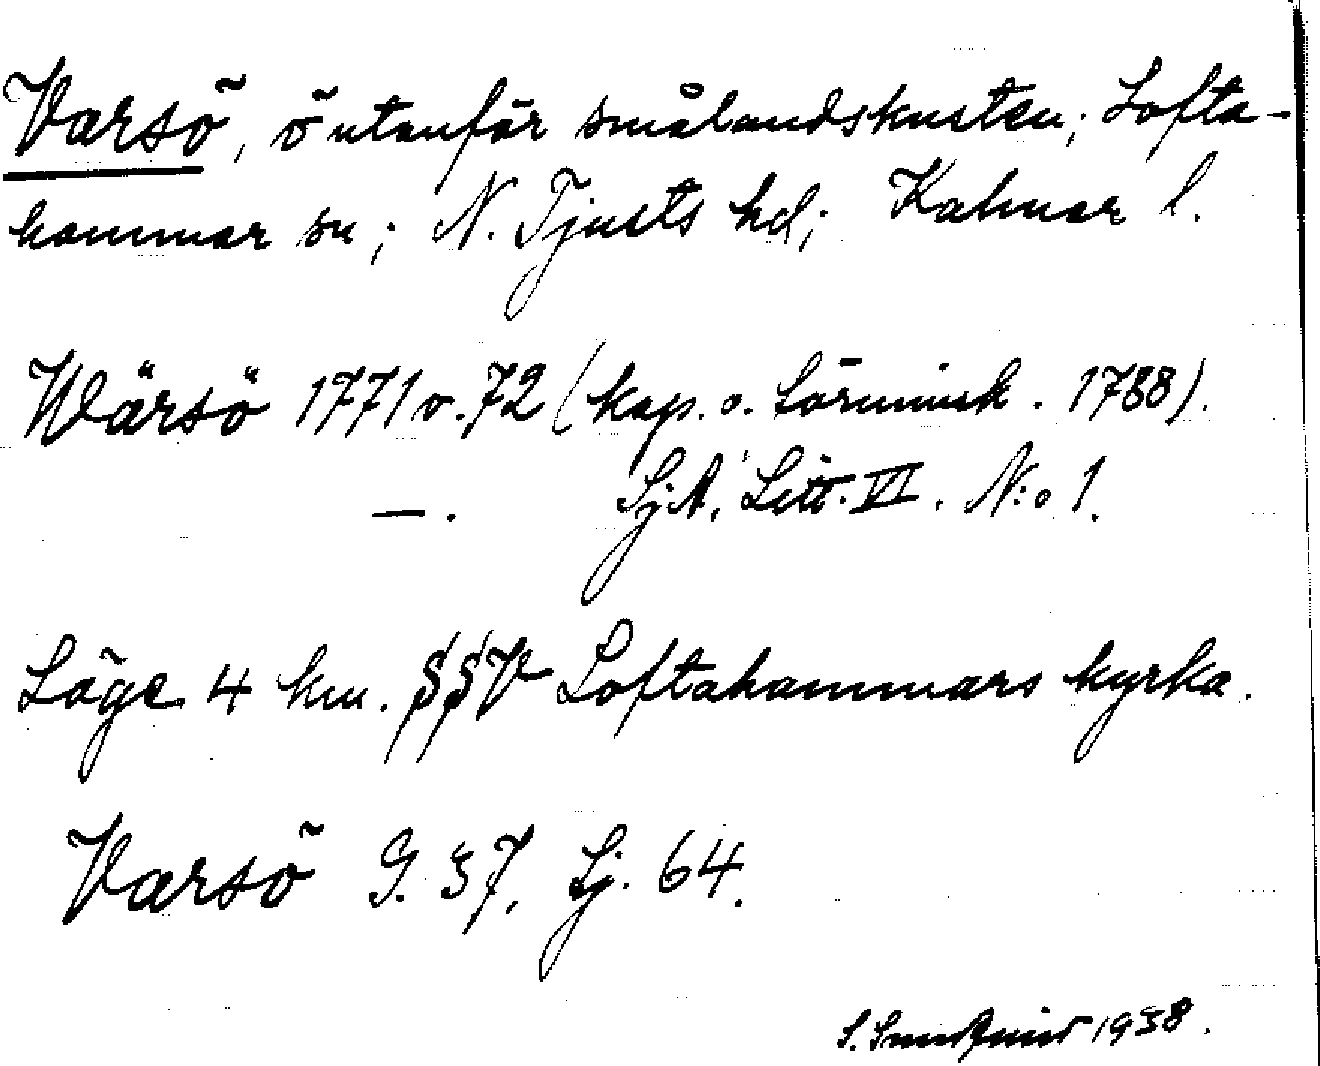 Varsö, ö utanför smålandskusten; Lofta-
hammar sn; N. Tjusts hd; Kalmar l.
Wärsö 1771 o. 72 (kop. o. förminsk. 1788).
—. SjA, Litt. VI. N:o 1.
Läge 4 km. SSV Loftahammars kyrka.
Varsö G. 37, Sj. 64.
S. 1938.